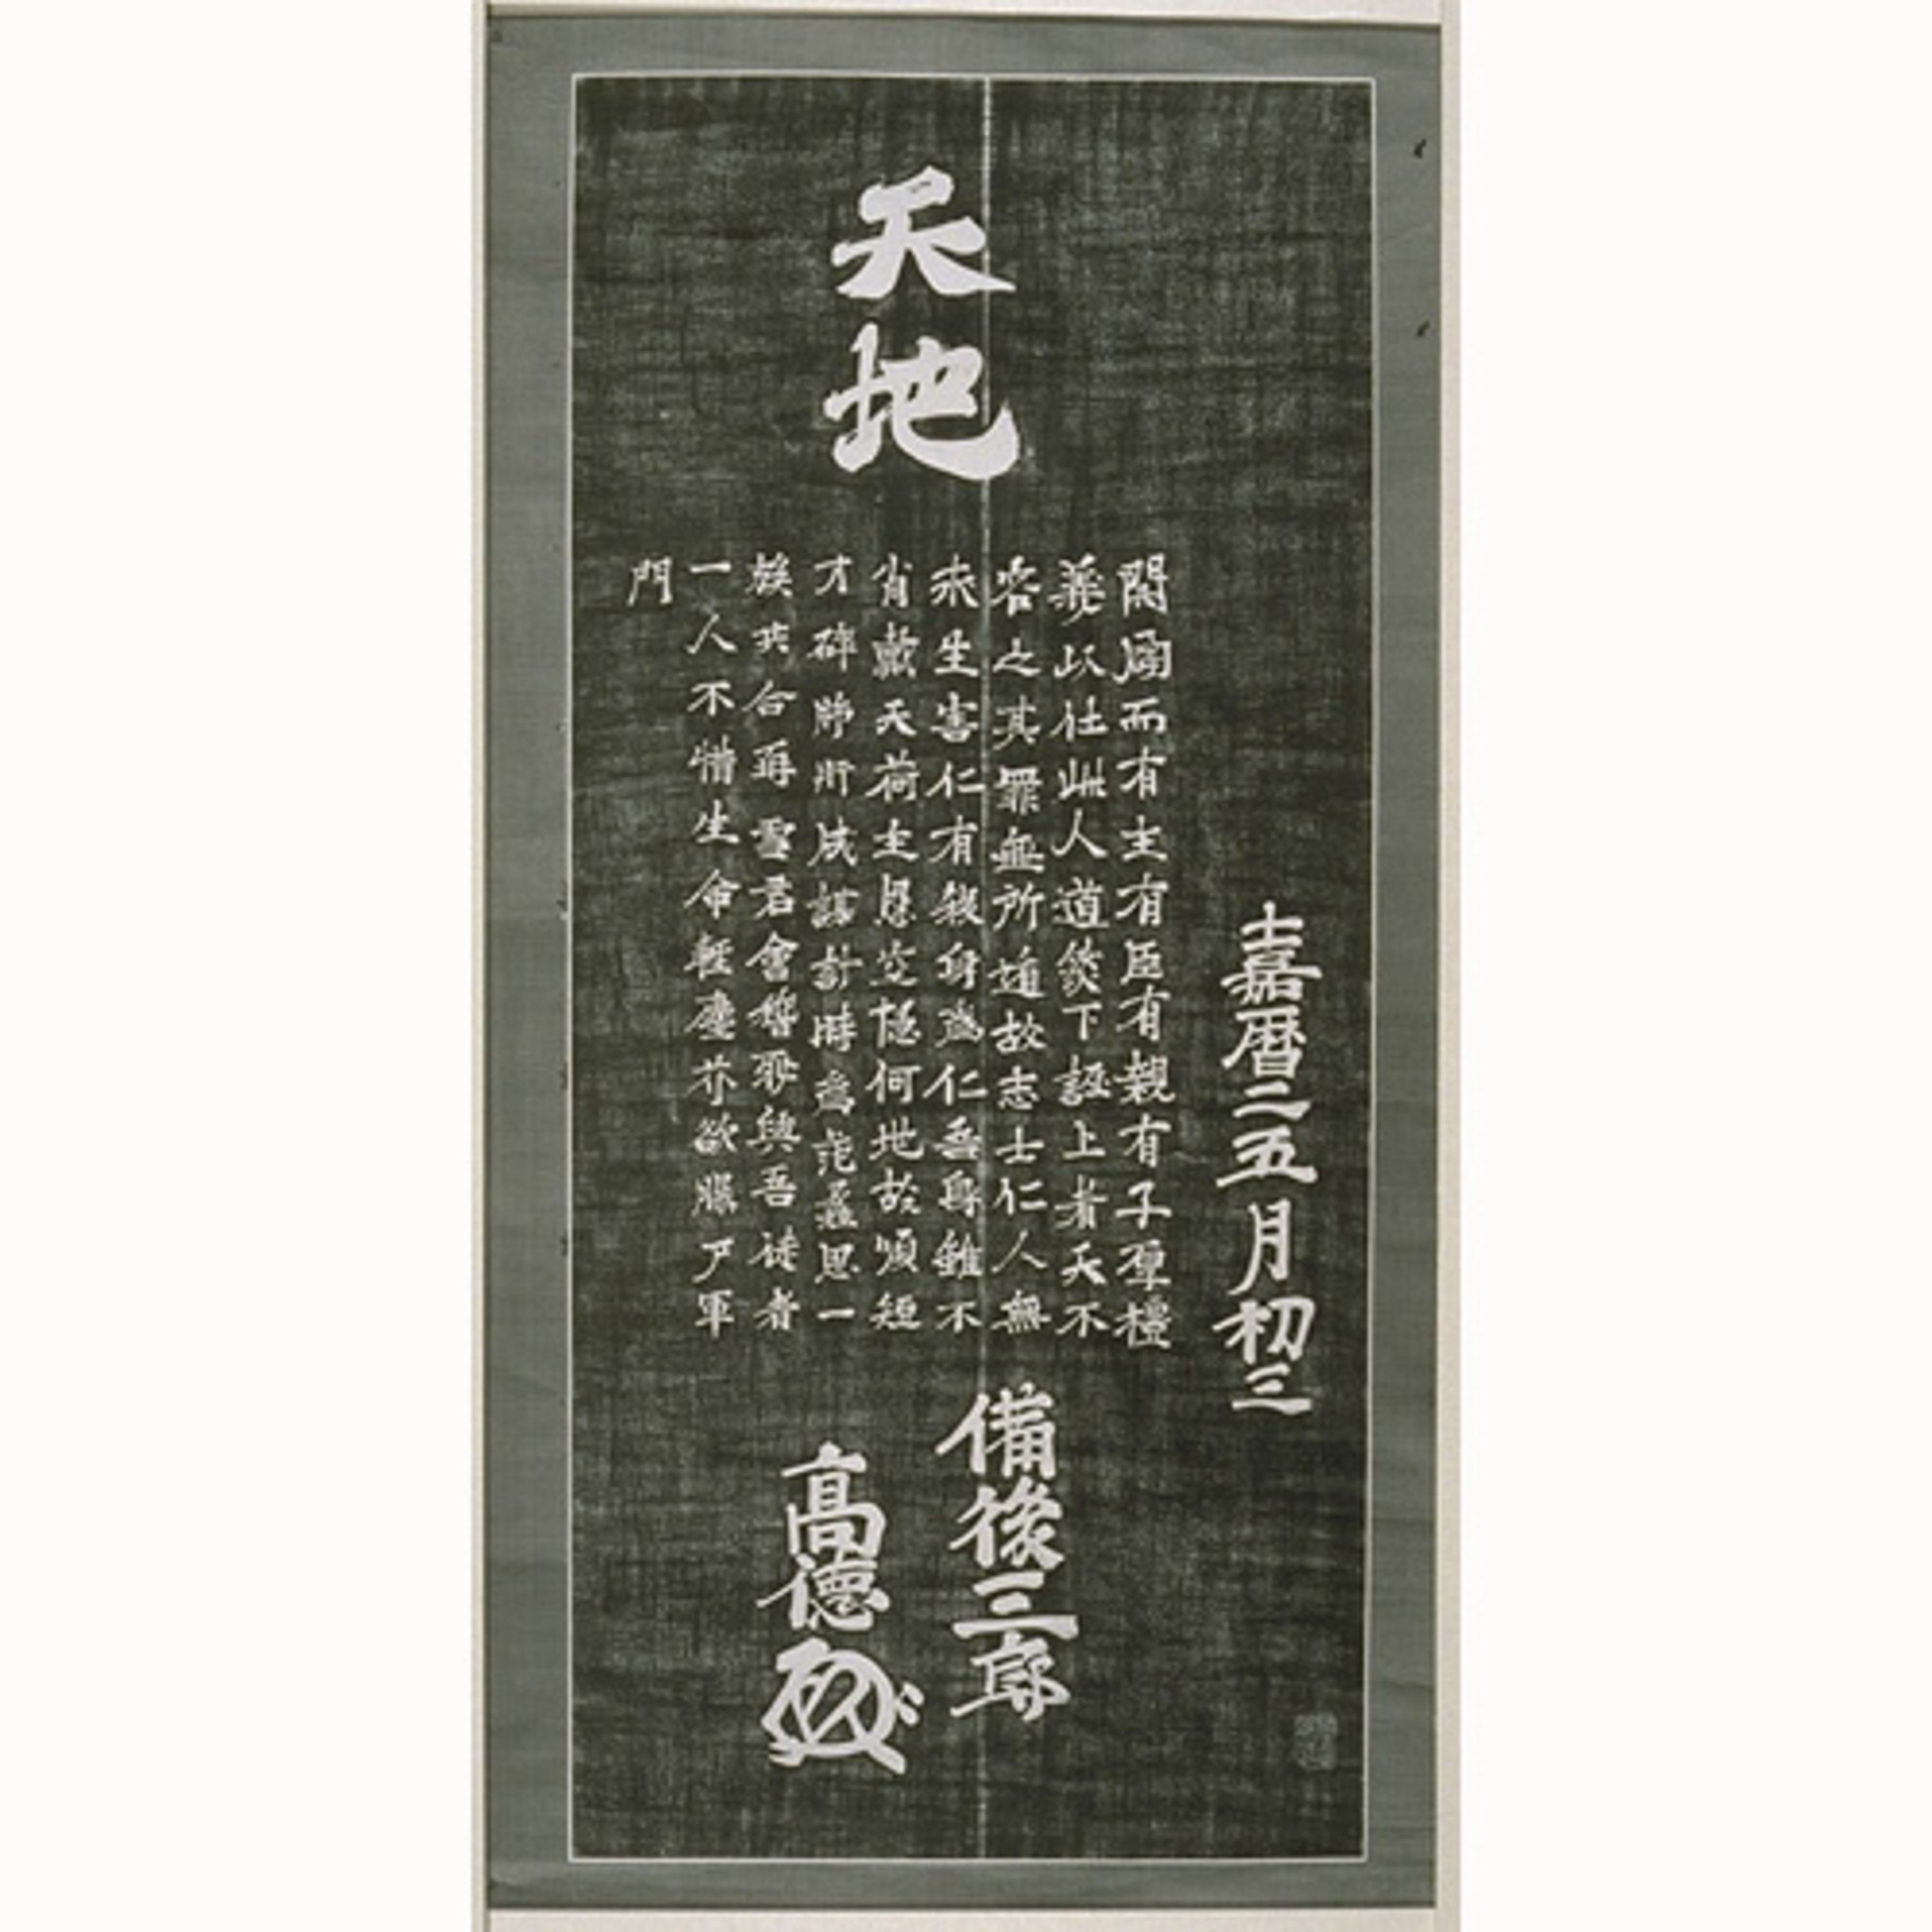 嘉暦二五月初三
天地
開闢而有主有臣有親有子禮
義以仕此人道然下誣上者天不
容之其罪無所逋故志士仁人無
求生害仁有殺身為仁吾身雖不
肖戴天荷主恩隠何地故傾短
才砕肺肝成謀計時為思一
族共合再聖君會稽耻與吾徒者
一人不惜生命軽塵芥欲曝尸軍
門
備後三郎
高德